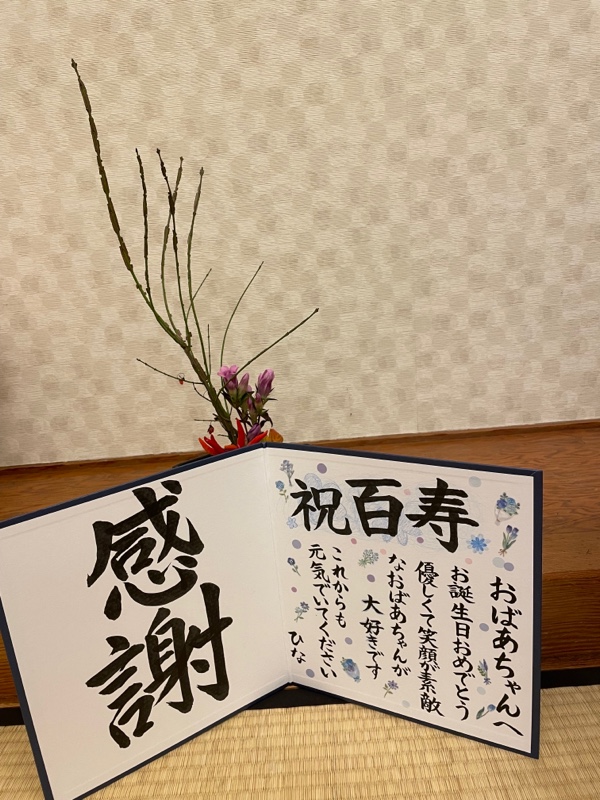 祝百寿
おばあちゃんへ
お誕生日おめでとう
優しくて笑顔が素敵
なおばあちゃんが
大好きです
これからも
元気でいてください
ひな
感謝